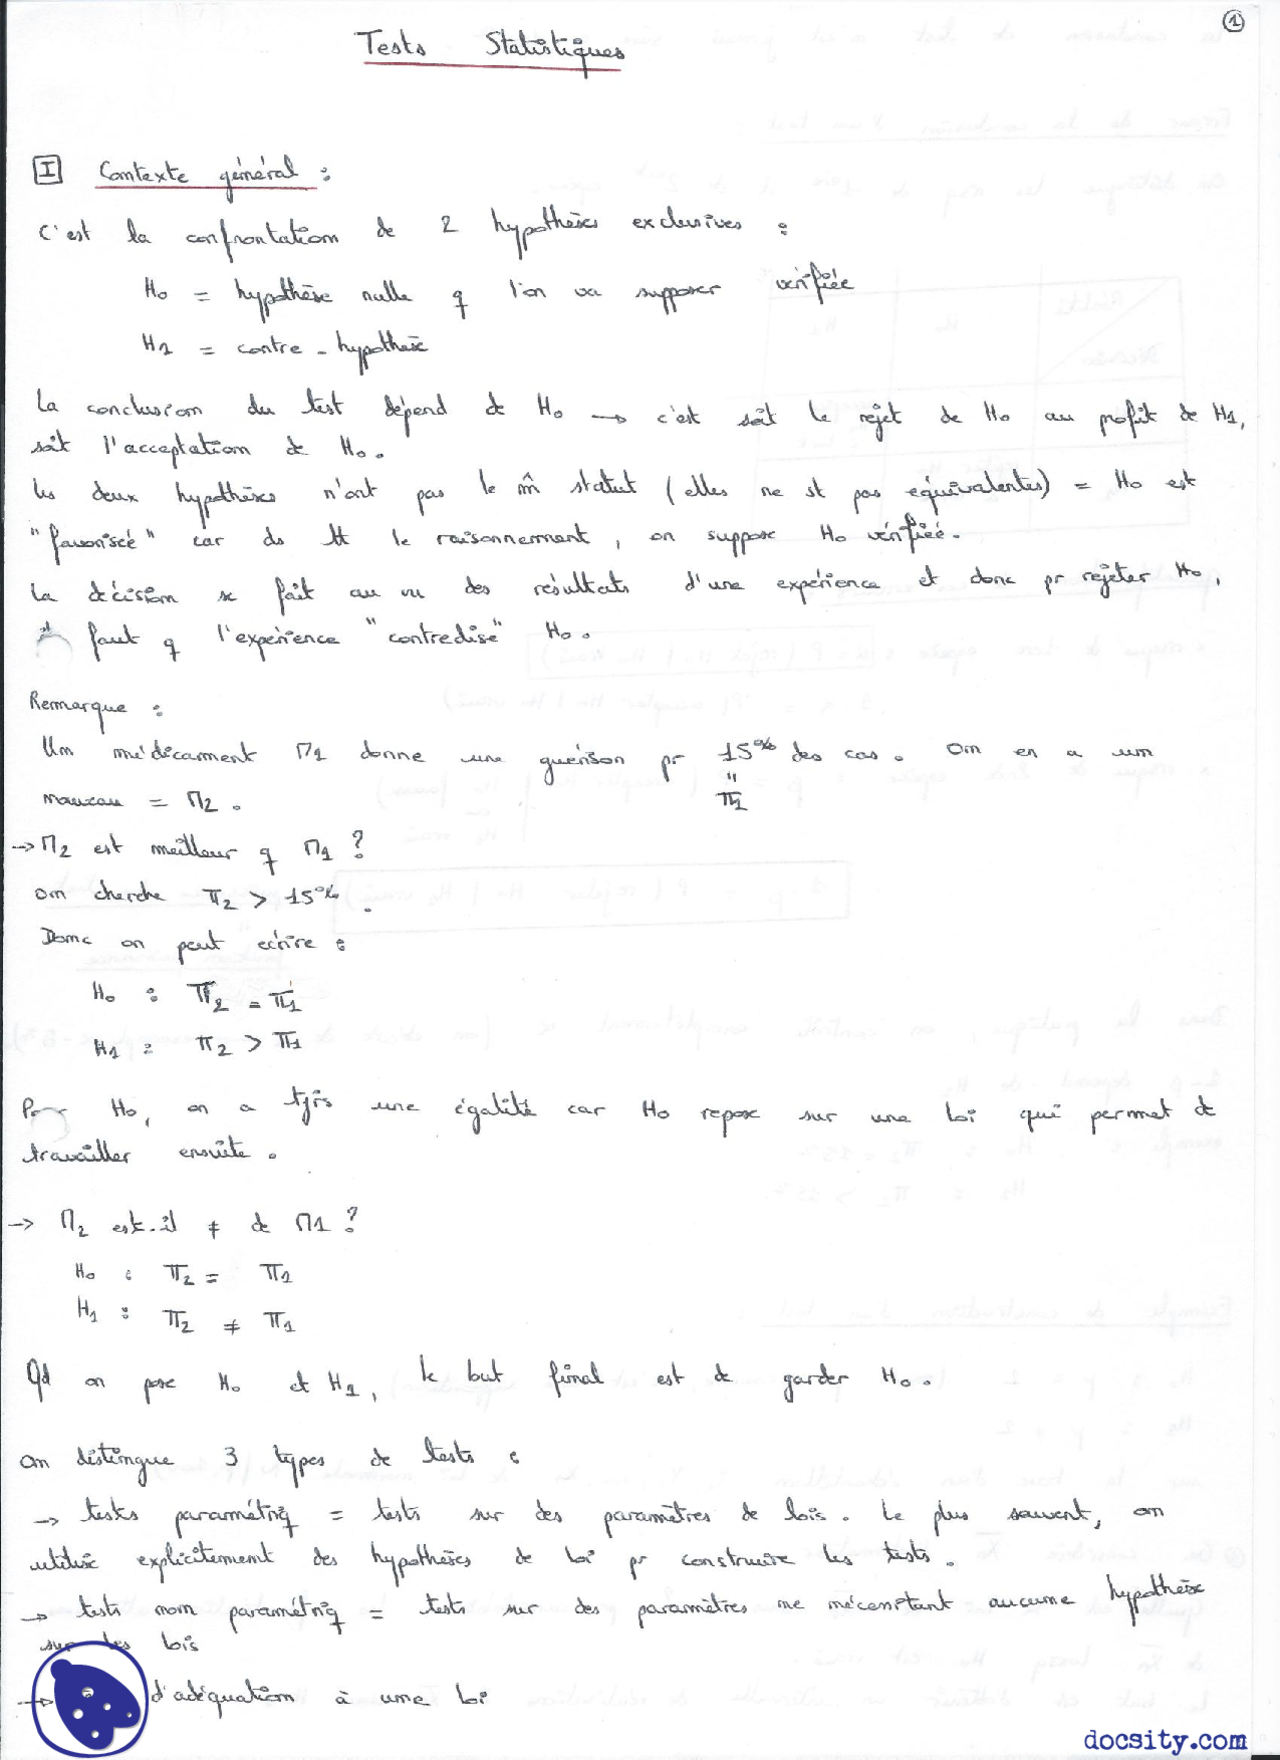 1
Tests Statistiques
I Contexte général :
C'est la confrontation de 2 hypothèses exclusives :
H0 = hypothèse nulle q l'on va supposer vérifiée
H1 = contre-hypothèse
La conclusion du test dépend de H0 → c'est soit le rejet de H0 au profit de H1,
soit l'acceptation de H0.
les deux hypothèses n'ont pas le m̂ statut (elles ne st pas équivalentes) = H0 est
"favorisée" car ds tt le raisonnement, on suppose H0 vérifiée.
La décision se fait au vu des résultats d'une expérience et donc pr rejeter H0,
il faut q l'expérience "contredise" H0.
Remarque :
Un médicament M1 donne une guérison pr 15% des cas. On en a un
"
π1
nouveau = M2.
→ M2 est meilleur q M1 ?
on cherche π2 > 15%.
Donc on peut écrire :
H0 : π2 = π1
H1 : π2 > π1
Pour H0, on a tjrs une égalité car H0 repose sur une loi qui permet de
travailler ensuite.
→ M2 est-il ≠ de M1 ?
H0 : π2 = π1
H1 : π2 ≠ π1
Qd on pose H0 et H1, le but final est de garder H0.
On distingue 3 types de tests :
→ tests paramétriq = tests sur des paramètres de lois. Le plus souvent, on
utilise explicitement des hypothèses de loi pr construire les tests.
→ tests non paramétriq = tests sur des paramètres ne nécessitant aucune hypothèse
sur les lois
→ d'adéquation à une loi
docsity.com